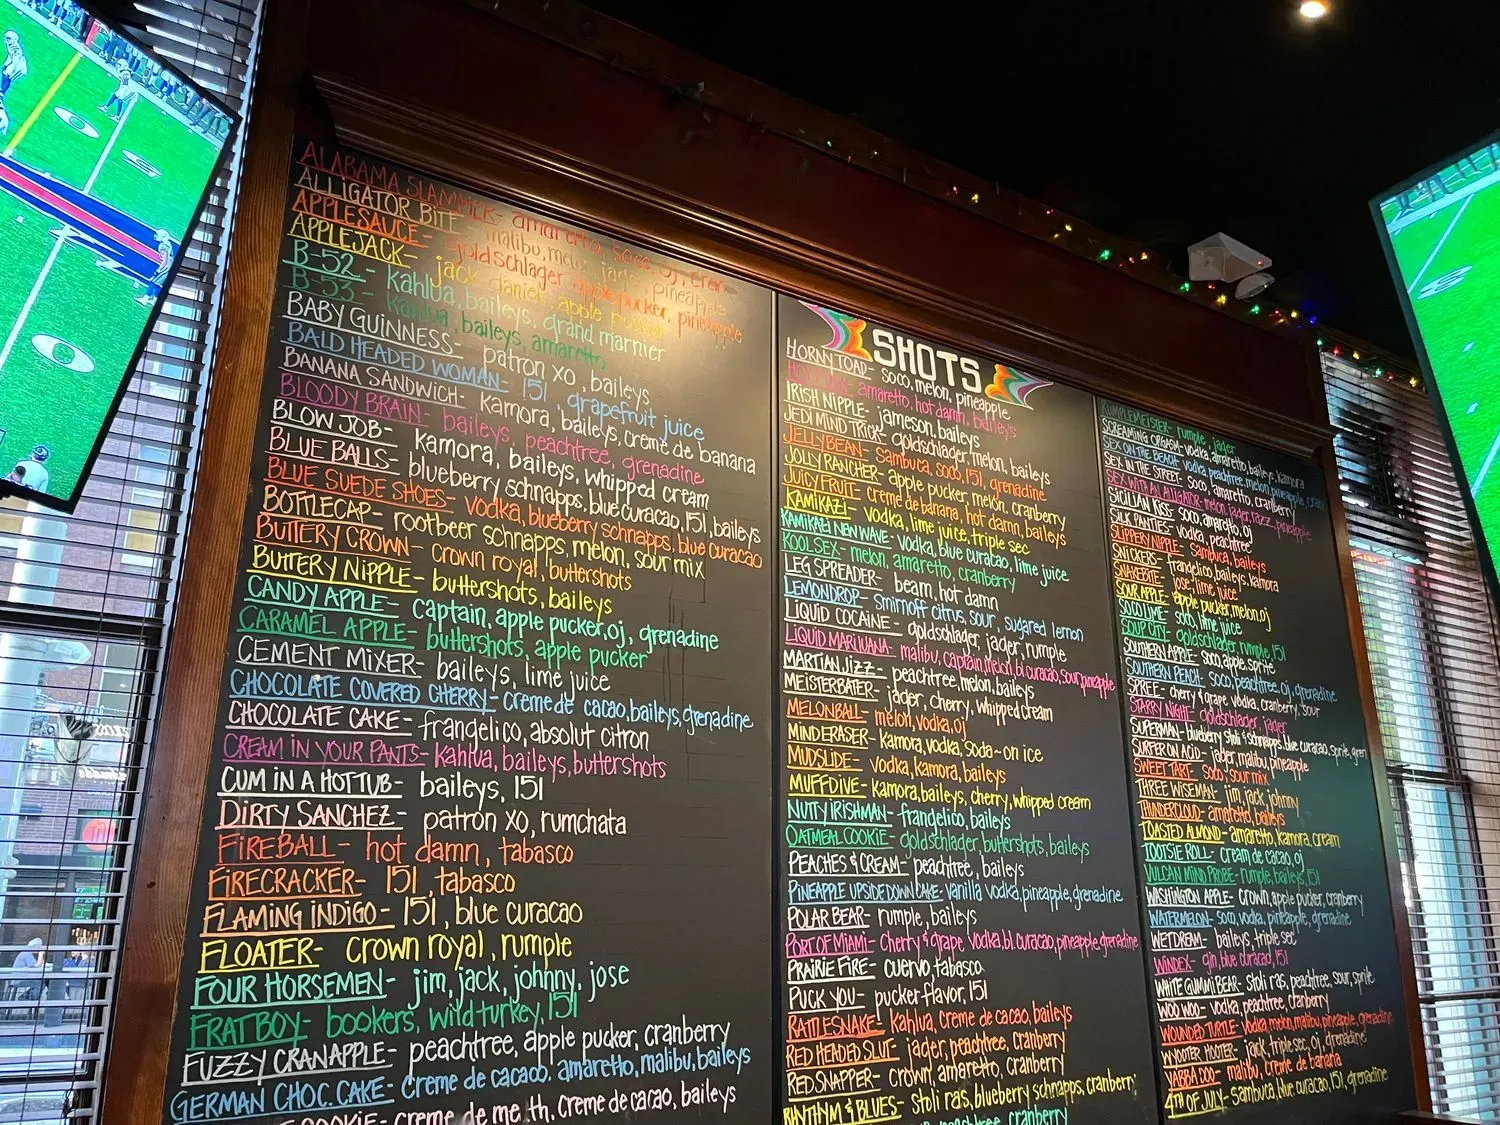 ALABAMA SLAMMER- amaretto, soco, oj, gren
ALLIGATOR BITE- malibu, melon, jager, pineapple
APPLESAUCE- goldschlager, apple pucker, pineapple
APPLEJACK- jack daniel, apple pucker
B-52 - kahlua, baileys, grand marnier
B-53 - kahlua, baileys, amaretto
BABY GUINNESS- patron xo, baileys
BALD HEADED WOMAN- 151, grapefruit juice
BANANA SANDWICH- kamora, baileys, creme de banana
BLOODY BRAIN- baileys, peachtree, grenadine
BLOW JOB- kamora, baileys, whipped cream
BLUE BALLS- blueberry schnapps, blue curacao, 151, baileys
BLUE SUEDE SHOES- vodka, blueberry schnapps, blue curacao
BOTTLECAP- rootbeer schnapps, melon, sour mix
BUTTERY CROWN- crown royal, buttershots
BUTTERY NIPPLE- buttershots, baileys
CANDY APPLE- captain, apple pucker, oj, grenadine
CARAMEL APPLE- buttershots, apple pucker
CEMENT MIXER- baileys, lime juice
CHOCOLATE COVERED CHERRY- creme de cacao, baileys, grenadine
CHOCOLATE CAKE- frangelico, absolut citron
CREAM IN YOUR PANTS- kahlua, baileys, buttershots
CUM IN A HOT TUB- baileys, 151
DIRTY SANCHEZ- patron xo, rumchata
FIREBALL- hot damn, tabasco
FIRECRACKER- 151, tabasco
FLAMING INDIGO- 151, blue curacao
FLOATER- crown royal, rumple
FOUR HORSEMEN- jim, jack, johnny, jose
FRAT BOY- bookers, wild turkey, 151
FUZZY CRANAPPLE- peachtree, apple pucker, cranberry
GERMAN CHOC. CAKE- creme de cacao, amaretto, malibu, baileys
COOKIE- creme de menth, creme de cacao, baileys
SHOTS
HORNY TOAD- soco, melon, pineapple
amaretto, hot damn, baileys
IRISH NIPPLE- jameson, baileys
JEDI MIND TRICK- goldschlager, melon, baileys
JELLYBEAN- sambuca, soco, 151, grenadine
JOLLY RANCHER- apple pucker, melon, cranberry
JUICY FRUIT- creme de banana, hot damn, baileys
KAMIKAZI- vodka, lime juice, triple sec
KAMIKAZI NEW WAVE- vodka, blue curacao, lime juice
KOOL SEX- melon, amaretto, cranberry
LEG SPREADER- beam, hot damn
LEMONDROP- Smirnoff citrus, sour, sugared lemon
LIQUID COCAINE- goldschlager, jager, rumple
LIQUID MARIJUANA- malibu, captain, melon, bl. curacao, sour, pineapple
MARTIAN JIZZ- peachtree, melon, baileys
MEISTERBATER- jager, cherry, whipped cream
MELONBALL- melon, vodka, oj
MIND ERASER- Kamora, vodka, soda-on ice
MUDSLIDE- vodka, kamora, baileys
MUFFDIVE- kamora, baileys, cherry, whipped cream
NUTTY IRISHMAN- frangelico, baileys
OATMEAL COOKIE- goldschlager, buttershots, baileys
PEACHES & CREAM- peachtree, baileys
PINEAPPLE UPSIDE DOWN CAKE- vanilla vodka, pineapple, grenadine
POLAR BEAR- rumple, baileys
PORT OF MIAMI- cherry & grape vodka, bl. curacao, pineapple, grenadine
PRAIRIE FIRE- cuervo, tabasco
PUCK YOU- pucker-flavor, 151
RATTLESNAKE- kahlua, creme de cacao, baileys
RED HEADED SLUT- jager, peachtree, cranberry
RED SNAPPER- crown, amaretto, cranberry
RHYTHM & BLUES- stoli ras, blueberry schnapps, cranberry
peachtree, cranberry
RUMPLEMEISTER- rumple, jager
SCREAMING ORGASM- vodka, amaretto, baileys, kamora
SEX ON THE BEACH- vodka, peachtree, melon, pineapple, cran
SEX IN THE STREET- soco, amaretto, cranberry
SEX WITH AN ALLIGATOR- melon, jager, razz, pineapple
SICILIAN KISS- soco, amaretto, oj
SILK PANTIES- vodka, peachtree
SLIPPERY NIPPLE- sambuca, baileys
SNICKERS- frangelico, baileys, kamora
SNAKEBITE- jose, lime juice
SOUR APPLE- apple pucker, melon, oj
SOCO LIME- soco, lime juice
SOUP CITY- goldschlager, rumple, 151
SOUTHERN APPLE- soco, apple, sprite
SOUTHERN PEACH- soco, peachtree, oj, grenadine
SPREE- cherry & grape vodka, cranberry, sour
STARRY NIGHT- goldschlager, jager
SUPERMAN- blueberry stoli & schnapps, blue curacao, sprite, gren
SURFER ON ACID- jager, malibu, pineapple
SWEET TART- soco, sour mix
THREE WISEMAN- jim, jack, johnny
THUNDERCLOUD- amaretto, baileys
TOASTED ALMOND- amaretto, kamora, cream
TOOTSIE ROLL- cream de cacao, oj
VULCAN MIND PROBE- rumple, baileys, 151
WASHINGTON APPLE- Crown, apple pucker, cranberry
WATERMELON- soco, vodka, pineapple, grenadine
WET DREAM- baileys, triple sec
WINDEX- gin, blue curacao, 151
WHITE GUMMI BEAR- Stoli ras, peachtree, sour, sprite
WOO WOO- vodka, peachtree, cranberry
WOUNDED TURTLE- vodka, melon, malibu, pineapple, grenadine
WOOTER HOOTER- jack, triple sec, oj, grenadine
YABBA DOO- malibu, creme de banana
4TH OF JULY- sambuca, blue curacao, 151, grenadine